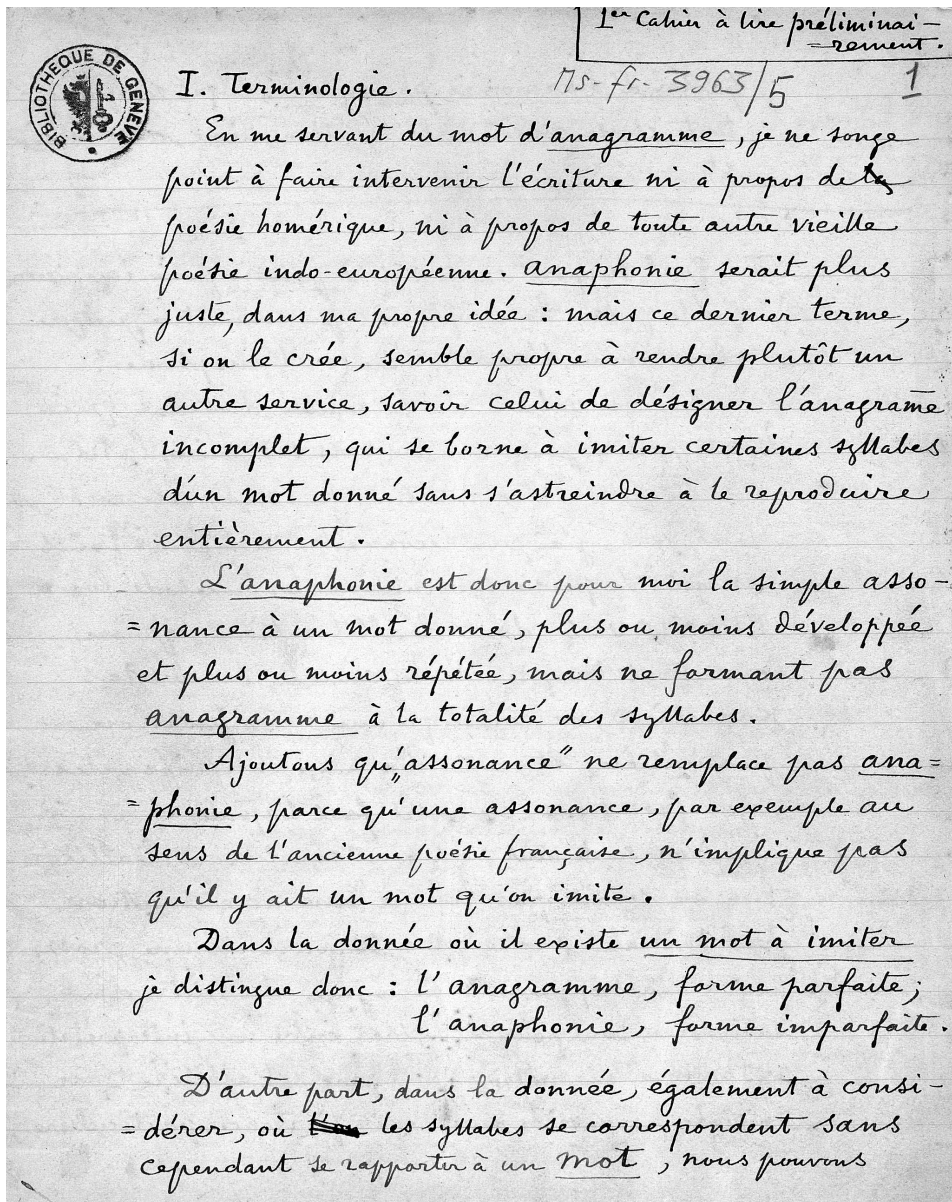 1er Cahier à lire préliminai-
=rement.
BIBLIOTHEQUE DE GENEVE
Ms-fr-3963/5
1
I. Terminologie.
En me servant du mot d'anagramme, je ne songe
point à faire intervenir l'écriture ni à propos de la
poésie homérique, ni à propos de toute autre vieille
poésie indo-européenne. anaphonie serait plus
juste, dans ma propre idée : mais ce dernier terme,
si on le crée, semble propre à rendre plutôt un
autre service, savoir celui de désigner l'anagram̄e
incomplet, qui se borne à imiter certaines syllabes
d'un mot donné sans s'astreindre à le reproduire
entièrement.
L'anaphonie est donc pour moi la simple asso-
=nance à un mot donné, plus ou moins développée
et plus ou moins répétée, mais ne formant pas
anagramme à la totalité des syllabes.
Ajoutons qu'„assonance" ne remplace pas ana=
=phonie, parce qu'une assonance, par exemple au
sens de l'ancienne poésie française, n'implique pas
qu'il y ait un mot qu'on imite.
Dans la donnée où il existe un mot à imiter
je distingue donc : l'anagramme, forme parfaite;
l'anaphonie, forme imparfaite.
D'autre part, dans la donnée, également à consi-
=dérer, où les syllabes se correspondent sans
cependant se rapporter à un mot, nous pouvons